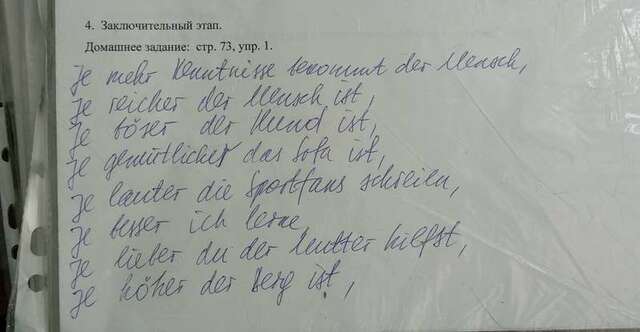 4. Заключительный этап.
Домашнее задание: стр. 73, упр. 1.
Je mehr Kenntnisse bekommt der Mensch,
Je reicher der Mensch ist,
Je böser der Hund ist,
Je gemütlicher das Sofa ist,
Je lauter die Sportfans schreien,
Je besser ich lerne,
Je lieber du der Mutter hilfst,
Je höher der Berg ist,